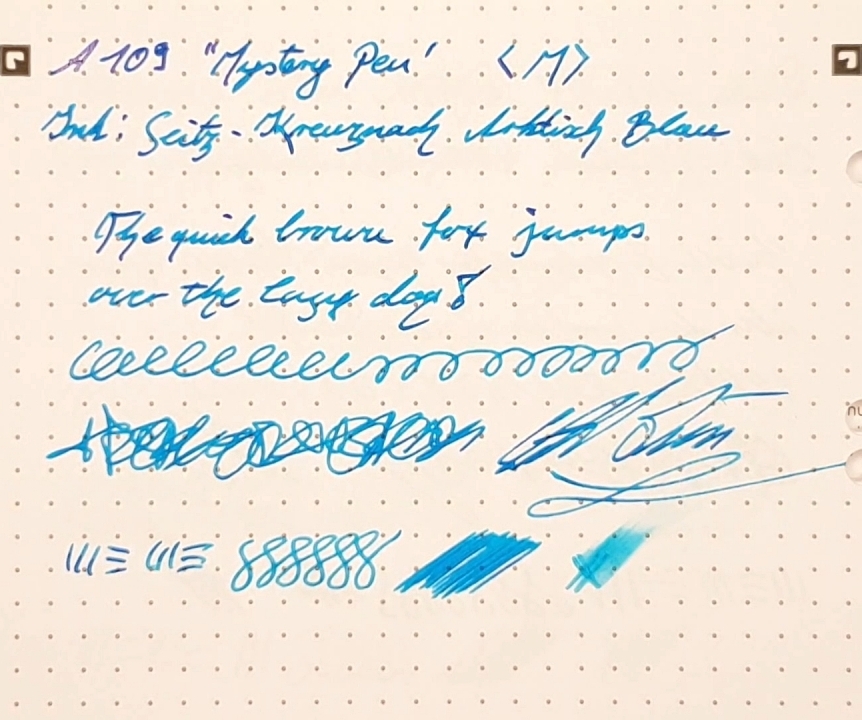 A 109 "Mystery Pen" <M>
Ink: Seitz-Kreuznach Arktisch Blau
The quick brown fox jumps
over the lazy dog